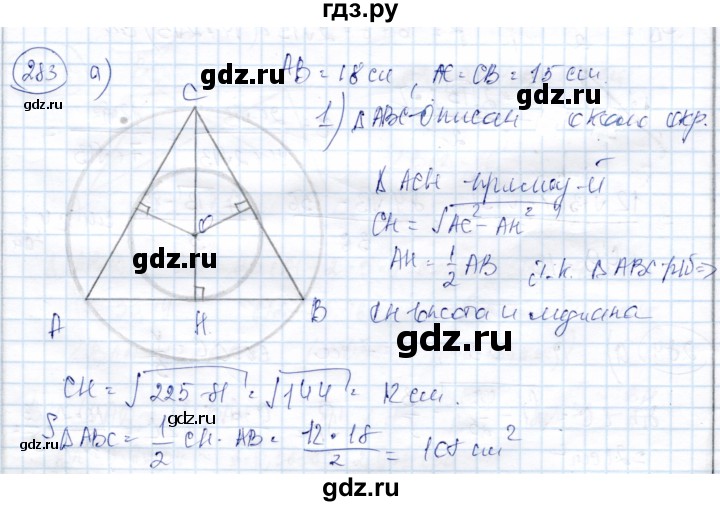 гдз.ру
283 а) AB = 18 см, AC = CB = 15 см.
gdz.ru
C
1) Δ ABC - описан около окр.
Δ ACH - прямоу-й
CH = √AC² - AH²
gdz.ru
O
AH = 1/2 AB т.к. Δ ABC - р/б =>
gdz.ru
A H B CH высота и медиана
gdz.ru
CH = √225-81 = √144 = 12 см.
S Δ ABC = 1/2 CH · AB = 12 · 18 / 2 = 108 см²
gdz.ru
gdz.ru